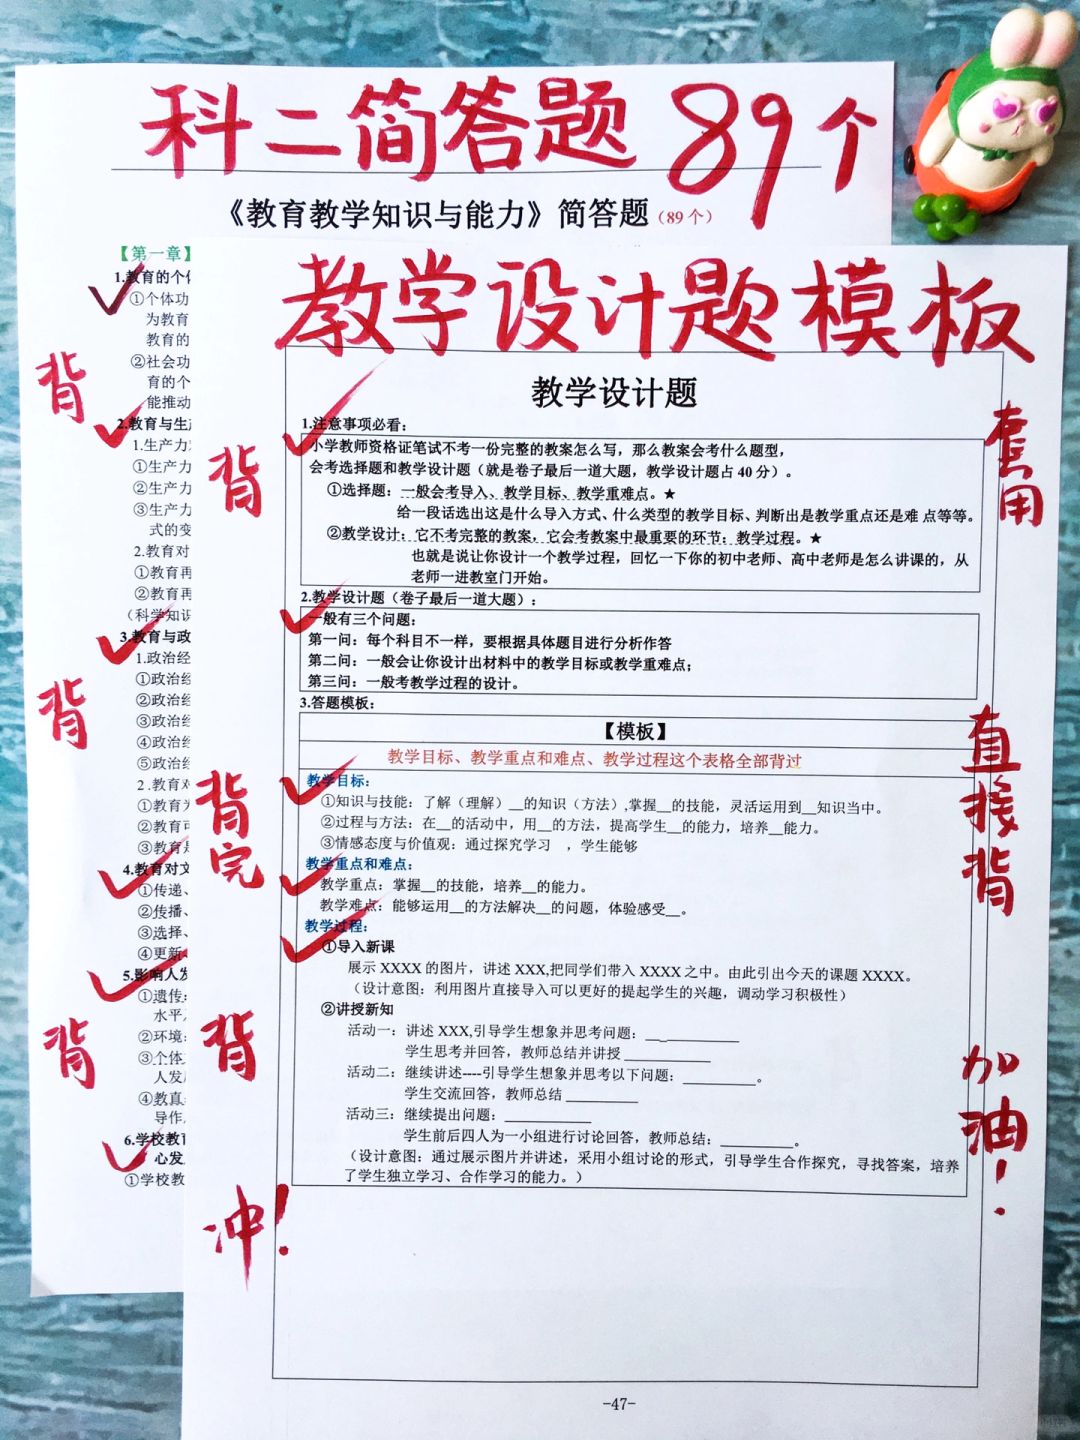 科二简答题 89个
《教育教学知识与能力》简答题（89个）
【第一章】
1.教育的个体
①个体功
为教育
教育的
②社会功
育的个
能推动
2.教育与生产
1.生产力
①生产力
②生产力
③生产力
式的变
2.教育对
①教育再
②教育再
（科学知识
3.教育与政
1.政治经
①政治经
②政治经
③政治经
④政治经
⑤政治经
2.教育对
①教育为
②教育可
③教育是
4.教育对文
①传递、
②传播、
③选择、
④更新、
5.影响人发
①遗传:
水平、
②环境:
③个体
人发
④教育
导作
6.学校教育
心发
①学校教
背
背
背
教学设计题模板
教学设计题
1.注意事项必看：
小学教师资格证笔试不考一份完整的教案怎么写，那么教案会考什么题型，
会考选择题和教学设计题（就是卷子最后一道大题，教学设计题占 40 分）。
①选择题：一般会考导入、教学目标、教学重难点。★
给一段话选出这是什么导入方式、什么类型的教学目标、判断出是教学重点还是难 点等等。
②教学设计：它不考完整的教案，它会考教案中最重要的环节：教学过程。★
也就是说让你设计一个教学过程，回忆一下你的初中老师、高中老师是怎么讲课的，从
老师一进教室门开始。
2.教学设计题（卷子最后一道大题）：
一般有三个问题：
第一问：每个科目不一样，要根据具体题目进行分析作答
第二问：一般会让你设计出材料中的教学目标或教学重难点；
第三问：一般考教学过程的设计。
3.答题模板：
【模板】
教学目标、教学重点和难点、教学过程这个表格全部背过
教学目标：
①知识与技能：了解（理解）__的知识（方法）,掌握__的技能，灵活运用到__知识当中。
②过程与方法：在__的活动中，用__的方法，提高学生__的能力，培养__能力。
③情感态度与价值观：通过探究学习 ，学生能够
教学重点和难点：
教学重点：掌握__的技能，培养__的能力。
教学难点：能够运用__的方法解决__的问题，体验感受__。
教学过程：
①导入新课
展示 XXXX 的图片，讲述 XXX,把同学们带入 XXXX 之中。由此引出今天的课题 XXXX。
（设计意图：利用图片直接导入可以更好的提起学生的兴趣，调动学习积极性）
②讲授新知
活动一：讲述 XXX,引导学生想象并思考问题：____________
学生思考并回答，教师总结并讲授 ____________
活动二：继续讲述----引导学生想象并思考以下问题：__________。
学生交流回答，教师总结 __________
活动三：继续提出问题：____________
学生前后四人为一小组进行讨论回答，教师总结：__________。
（设计意图：通过展示图片并讲述，采用小组讨论的形式，引导学生合作探究，寻找答案，培养
了学生独立学习、合作学习的能力。）
背
背完
背
冲！
套用
直接背
加油！
-47-